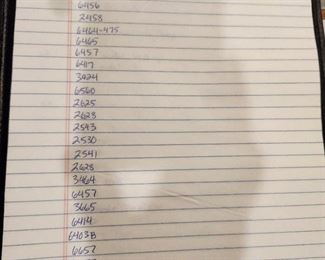 6456
2458
6464-475
6465
6457
6417
3424
6560
2625
2623
2543
2530
2541
2628
3464
6457
3665
6414
6403B
6657